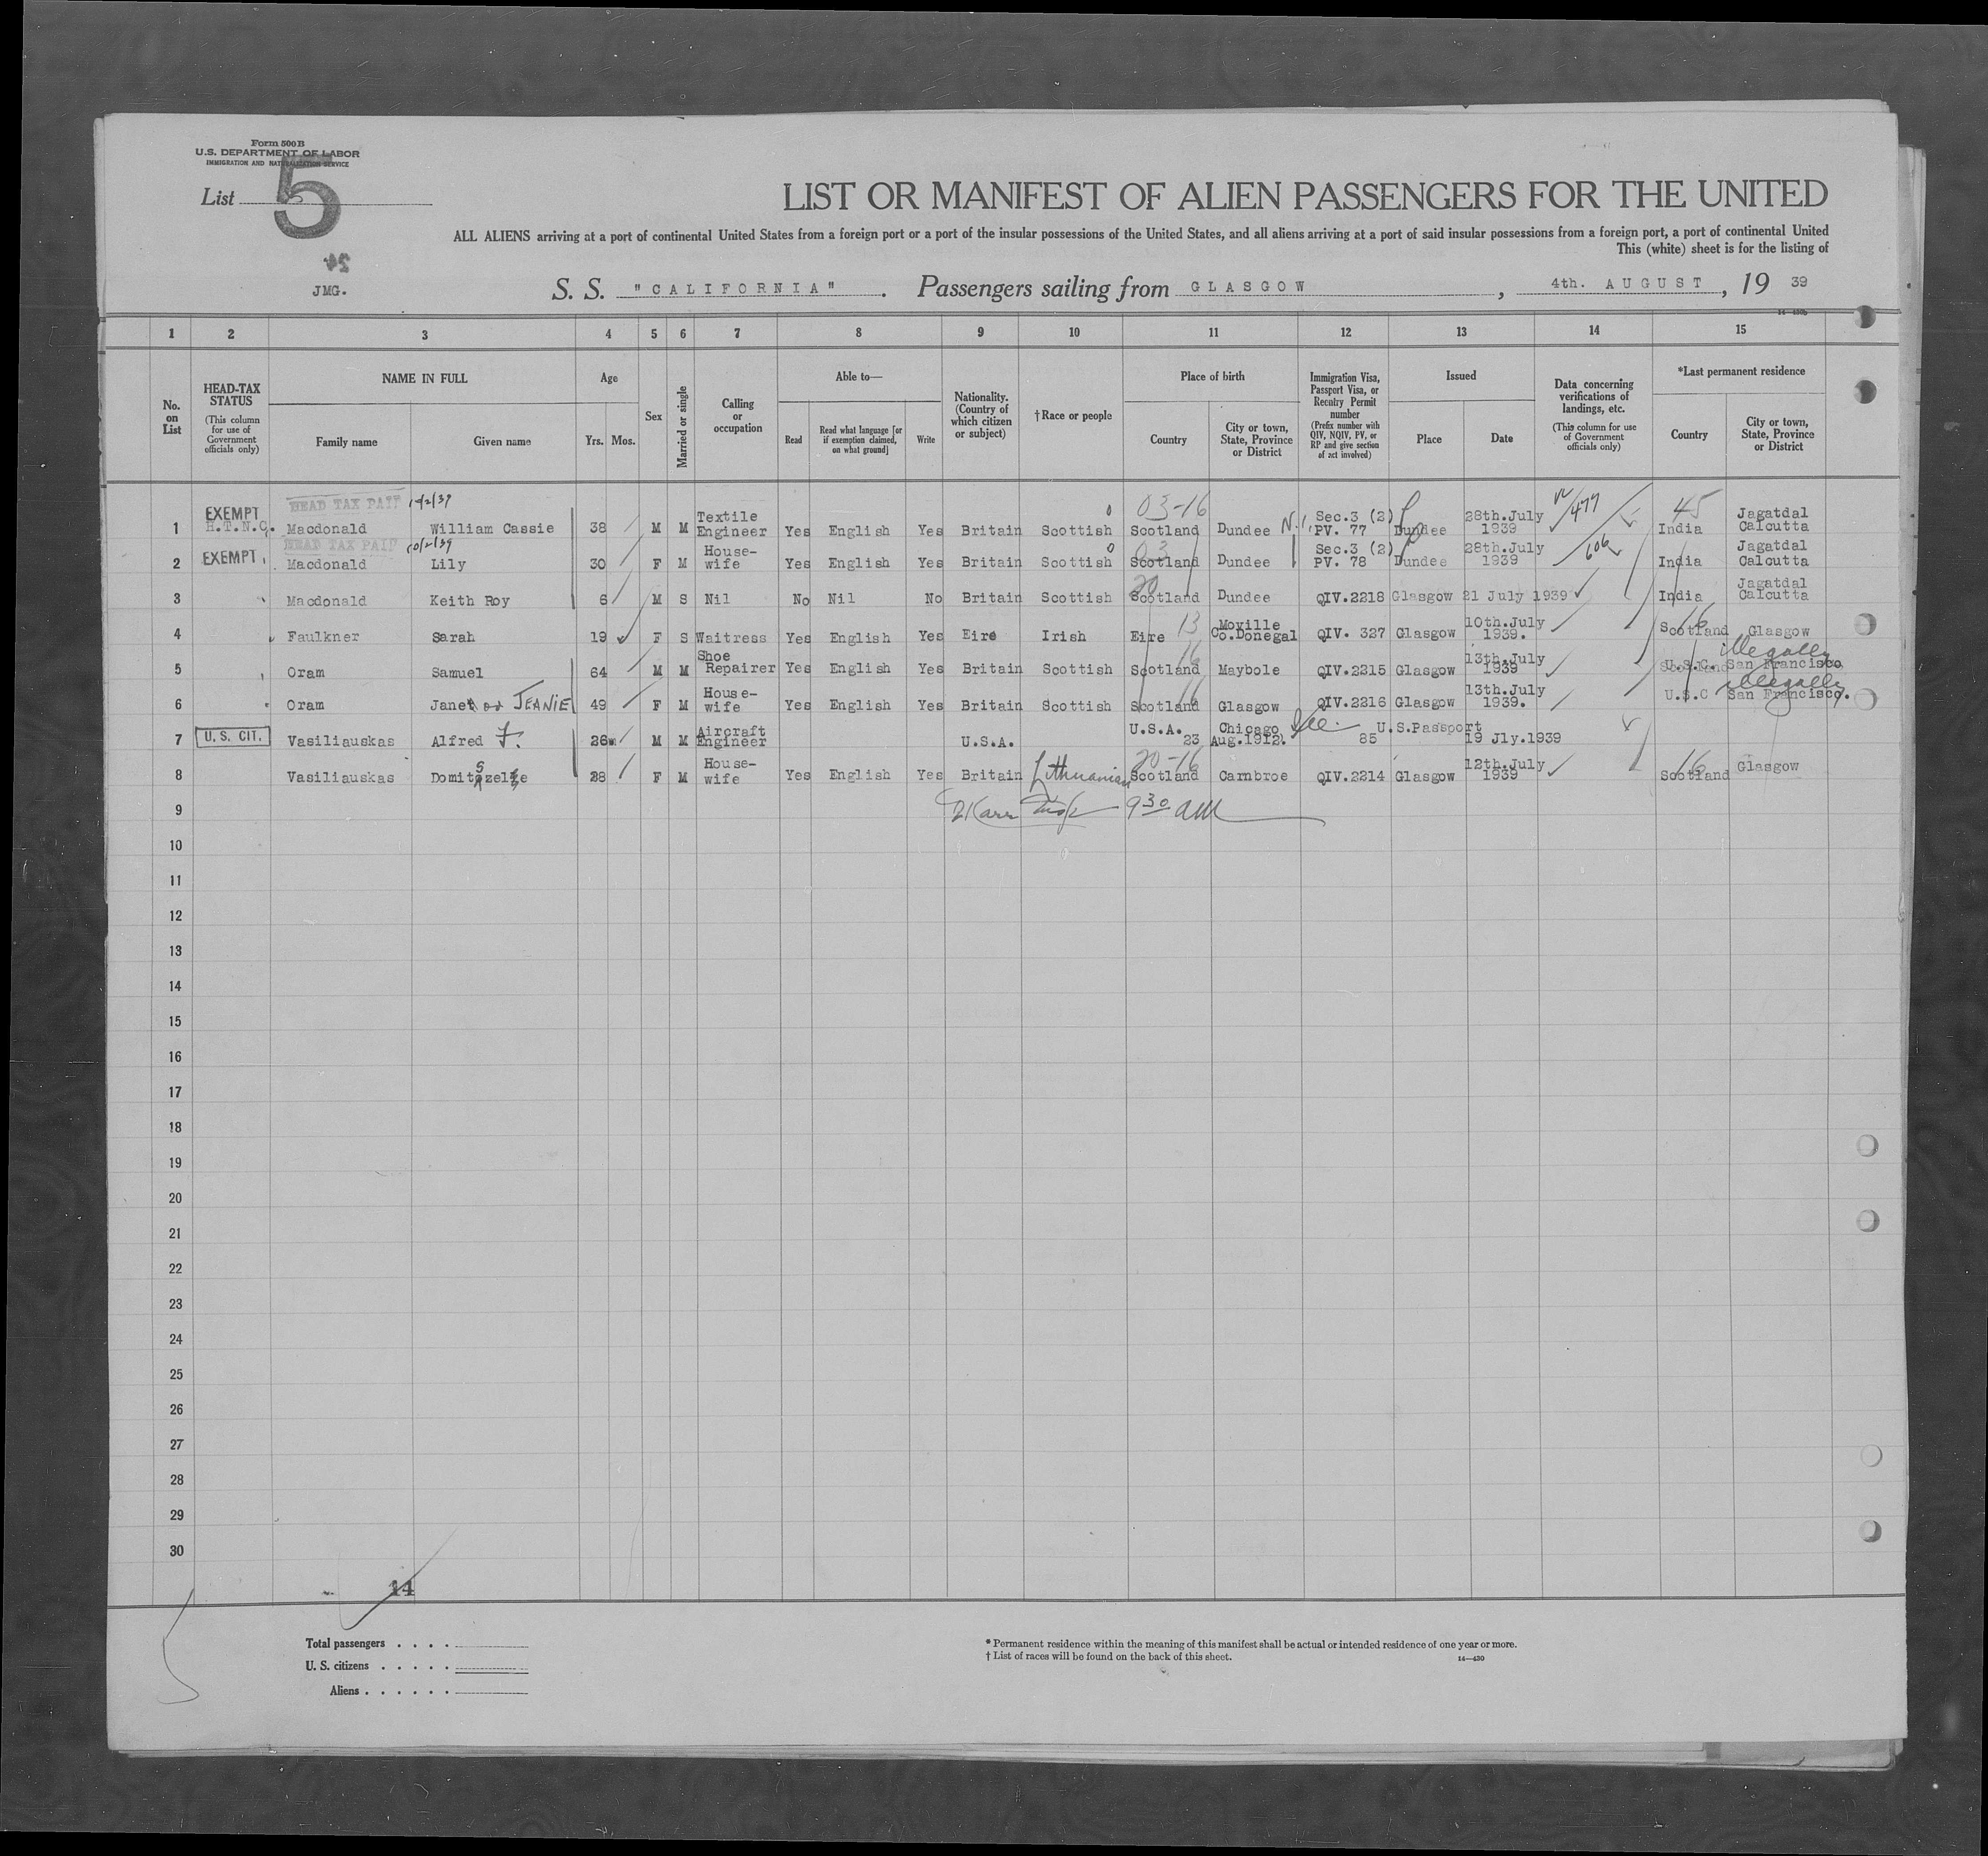 Form 500 B
U.S. DEPARTMENT OF LABOR
IMMIGRATION AND NATURALIZATION SERVICE
List 5
24
JMG.
LIST OR MANIFEST OF ALIEN PASSENGERS FOR THE UNITED
ALL ALIENS arriving at a port of continental United States from a foreign port or a port of the insular possessions of the United States, and all aliens arriving at a port of said insular possessions from a foreign port, a port of continental United
This (white) sheet is for the listing of
S. S. "CALIFORNIA". Passengers sailing from GLASGOW, 4th. AUGUST, 19 39
1 2 3 4 5 6 7 8 9 10 11 12 13 14 15
No. on List
HEAD-TAX STATUS (This column for use of Government officials only)
NAME IN FULL Family name Given name
Age Yrs. Mos.
Sex
Married or single
Calling or occupation
Able to— Read Read what language [or if exemption claimed, on what ground] Write
Nationality. (Country of which citizen or subject)
†Race or people
Place of birth Country City or town, State, Province or District
Immigration Visa, Passport Visa, or Reentry Permit number (Prefix number with QIV, NQIV, PV, or RP and give section of act involved)
Issued Place Date
Data concerning verifications of landings, etc. (This column for use of Government officials only)
*Last permanent residence Country City or town, State, Province or District
HEAD TAX PAID
1 EXEMPT H.T.N.C. Macdonald William Cassie 38 M M Textile Engineer Yes English Yes Britain Scottish 03-16 Scotland Dundee Sec.3 (2) PV. 77 Dundee 28th.July 1939 477 45 India Jagatdal Calcutta
HEAD TAX PAID
2 EXEMPT Macdonald Lily 30 F M House-wife Yes English Yes Britain Scottish 03 Scotland Dundee Sec.3 (2) PV. 78 Dundee 28th.July 1939 606 India Jagatdal Calcutta
3 Macdonald Keith Roy 6 M S Nil No Nil No Britain Scottish 20 Scotland Dundee QIV.2218 Glasgow 21 July 1939 India Jagatdal Calcutta
4 Faulkner Sarah 19 F S Waitress Yes English Yes Eire Irish Eire 13 Moville Co.Donegal QIV. 327 Glasgow 10th.July 1939. 16 Scotland Glasgow
5 Oram Samuel 64 M M Shoe Repairer Yes English Yes Britain Scottish 16 Scotland Maybole QIV.2215 Glasgow 13th.July 1939 U.S.C. San Francisco illegally
6 Oram Janet or JEANIE 49 F M House-wife Yes English Yes Britain Scottish 16 Scotland Glasgow QIV.2216 Glasgow 13th.July 1939. U.S.C San Francisco. illegally
7 U. S. CIT. Vasiliauskas Alfred F. 26 M M Aircraft Engineer U.S.A. U.S.A. Chicago 23 Aug.1912. U.S.Passport 85 19 Jly.1939
8 Vasiliauskas Domitszele 28 F M House-wife Yes English Yes Britain Lithuanian 20-16 Scotland Carnbroe QIV.2214 Glasgow 12th.July 1939 16 Scotland Glasgow
9 9 30 AM
10
11
12
13
14
15
16
17
18
19
20
21
22
23
24
25
26
27
28
29
30
14
Total passengers
U. S. citizens
Aliens
* Permanent residence within the meaning of this manifest shall be actual or intended residence of one year or more.
† List of races will be found on the back of this sheet.
14—430